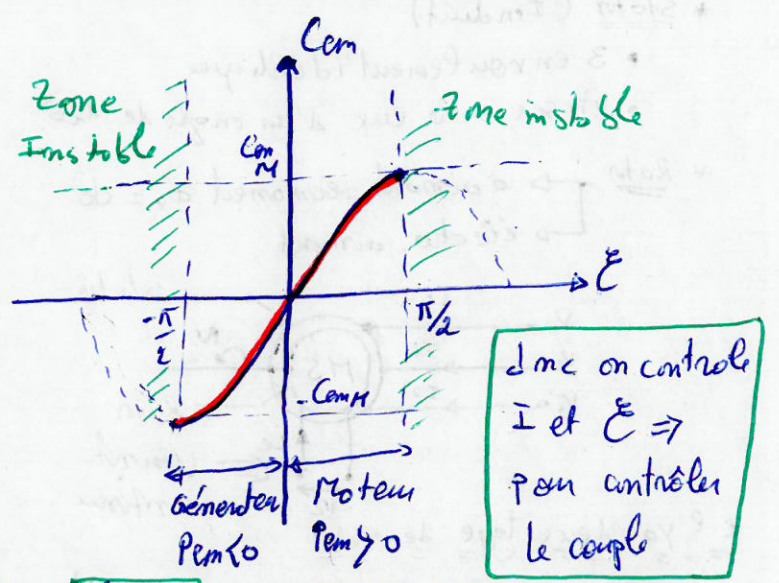 Cem
Zone
Instable
Zone instable
Cem
M
ξ
-π
2
π/2
-CemM
Générateur
Moteur
Pem<0
Pem>0
donc on contrôle
I et ξ ⇒
pour contrôler
le couple